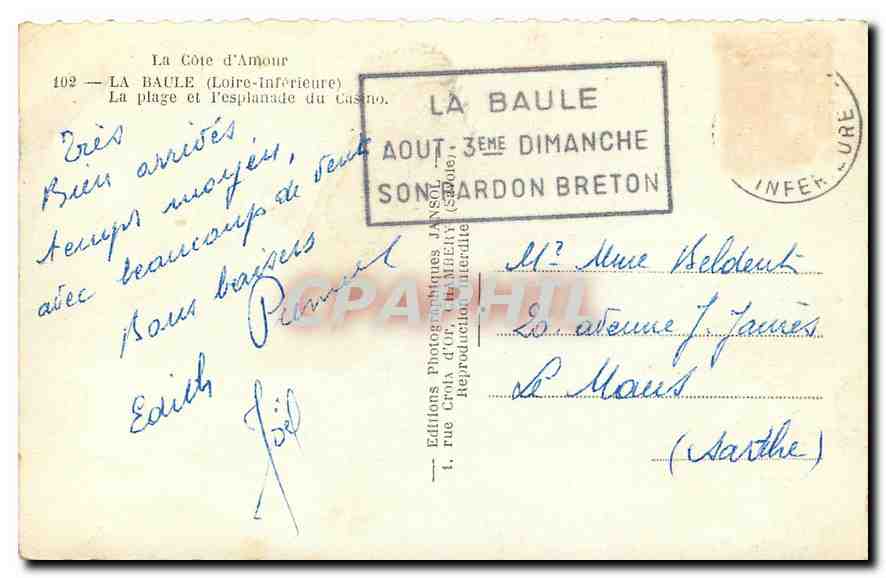 La Côte d'Amour
102 — LA BAULE (Loire-Inférieure)
La plage et l'esplanade du Casino.
LA BAULE
AOUT - 3EME DIMANCHE
SON PARDON BRETON
INFER URE
Très
Bien arrivés,
temps moyen,
avec beaucoup de vent
Bons baisers
Edith
Joël
— Editions Photographiques JANSOL —
1, rue Croix d'Or, CHAMBERY (Savoie)
Reproduction interdite
Mr Mme Beldent
20. avenue J. Jaurès
Le Mans
(Sarthe)
CPARHIL